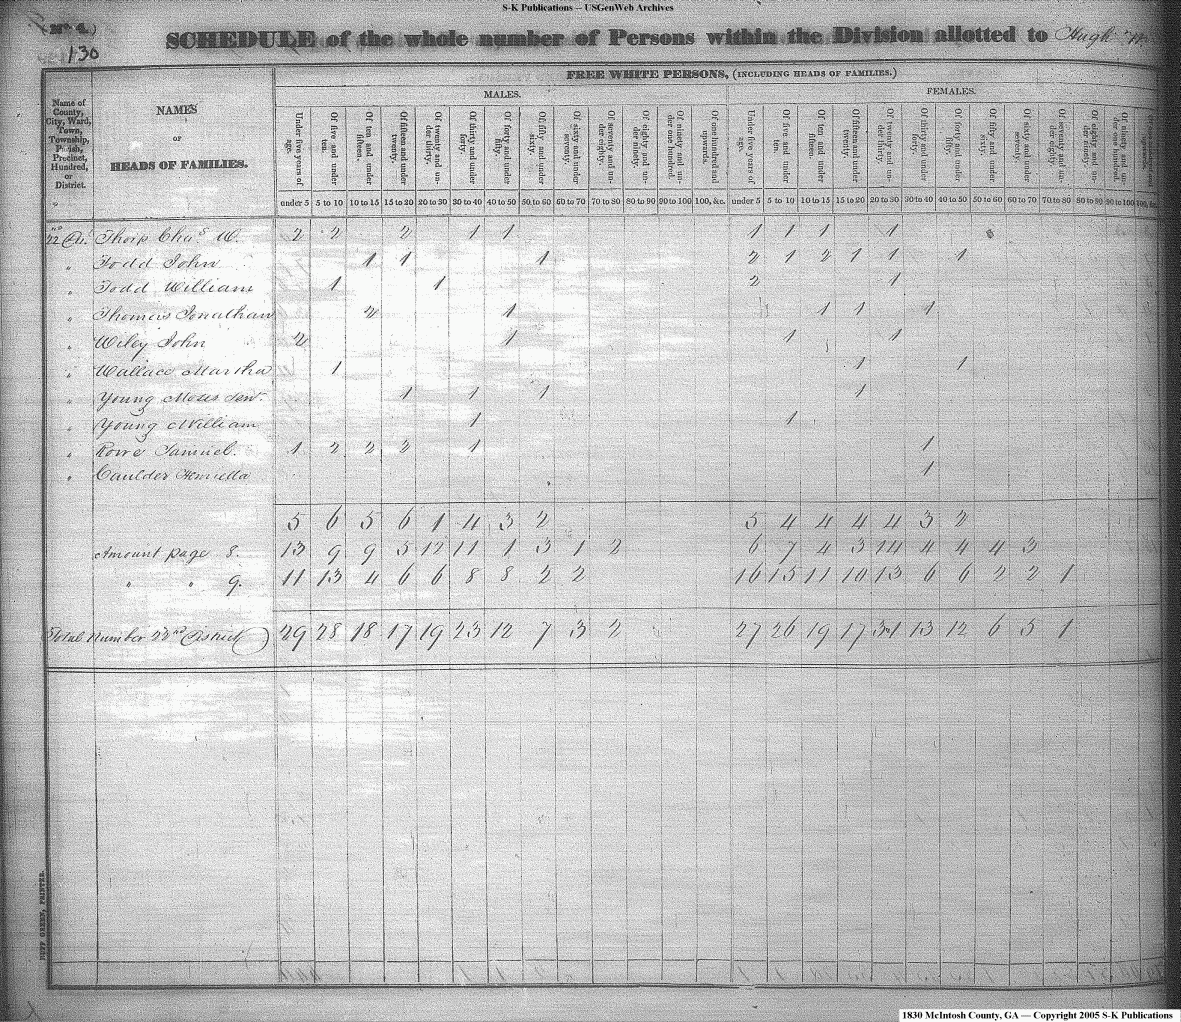 S-K Publications -- USGenWeb Archives
(No 4.)
130
SCHEDULE of the whole number of Persons within the Division allotted to Hugh
FREE WHITE PERSONS, (INCLUDING HEADS OF FAMILIES.)
MALES. FEMALES.
Name of County, City, Ward, Town, Township, Parish, Precinct, Hundred, or District.
NAMES
OF
HEADS OF FAMILIES.
Under five years of age. Of five and under ten. Of ten and under fifteen. Of fifteen and under twenty. Of twenty and under thirty. Of thirty and under forty. Of forty and under fifty. Of fifty and under sixty. Of sixty and under seventy. Of seventy and under eighty. Of eighty and under ninety. Of ninety and under one hundred. Of one hundred and upwards. Under five years of age. Of five and under ten. Of ten and under fifteen. Of fifteen and under twenty. Of twenty and under thirty. Of thirty and under forty. Of forty and under fifty. Of fifty and under sixty. Of sixty and under seventy. Of seventy and under eighty. Of eighty and under ninety. Of ninety and under one hundred.
under 5 5 to 10 10 to 15 15 to 20 20 to 30 30 to 40 40 to 50 50 to 60 60 to 70 70 to 80 80 to 90 90 to 100 100, &c. under 5 5 to 10 10 to 15 15 to 20 20 to 30 30 to 40 40 to 50 50 to 60 60 to 70 70 to 80 80 to 90 90 to 100 100, &c.
22 Thorp Chas W. 2 2 2 1 1 1 1 1 1
" Todd John 1 1 1 2 1 2 1 1 1
" Todd William 1 1 2 1
" Thomas Jonathan 2 1 1 1 1
" Wiley John 2 1 1 1
" Wallace Martha 1 1 1
" Young Moses Senr. 1 1 1 1
" Young William 1 1
" Rowe Samuel. 1 2 2 2 1 1
" Caulder Henrietta 1
5 6 5 6 1 4 3 2 5 4 4 4 4 3 2
Amount page 8. 13 9 9 5 12 11 1 3 1 2 6 7 4 3 14 4 4 4 3
" " 9. 11 13 4 6 6 8 8 2 2 16 15 11 10 13 6 6 2 2 1
Total Number 22nd District) 29 28 18 17 19 23 12 7 3 2 27 26 19 17 31 13 12 6 5 1
DUFF GREEN, PRINTER.
1830 McIntosh County, GA — Copyright 2005 S-K Publications